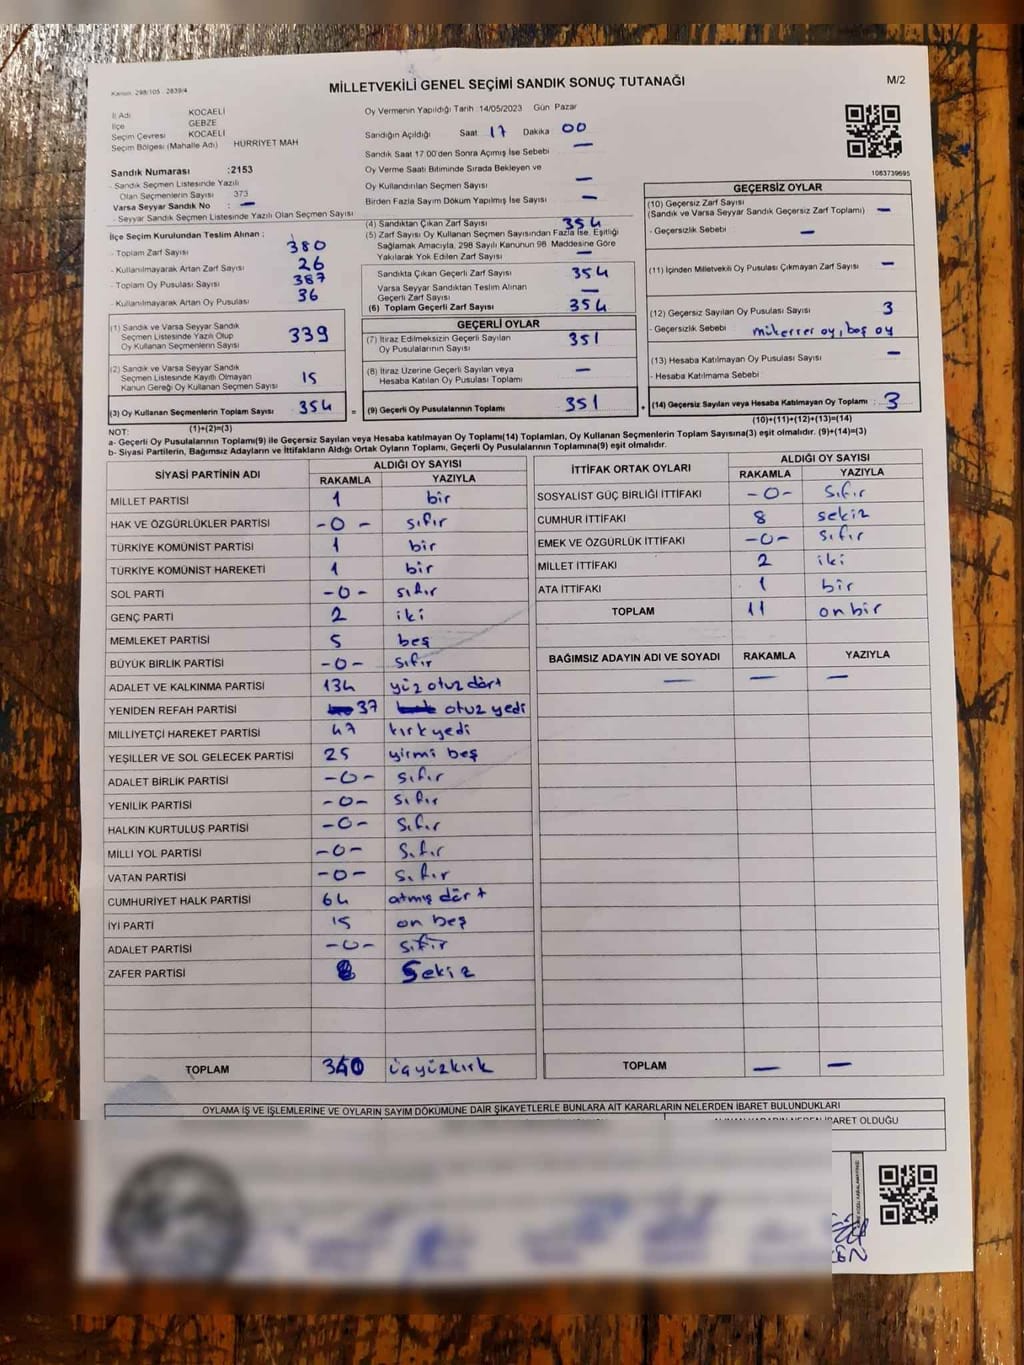 Kanun: 298/105 - 2839/4
MİLLETVEKİLİ GENEL SEÇİMİ SANDIK SONUÇ TUTANAĞI
M/2
İl Adı KOCAELİ
İlçe GEBZE
Seçim Çevresi KOCAELİ
Seçim Bölgesi (Mahalle Adı) HÜRRİYET MAH
Sandık Numarası :2153
- Sandık Seçmen Listesinde Yazılı
Olan Seçmenlerin Sayısı 373
Varsa Seyyar Sandık No : —
- Seyyar Sandık Seçmen Listesinde Yazılı Olan Seçmen Sayısı
İlçe Seçim Kurulundan Teslim Alınan :
- Toplam Zarf Sayısı 380
- Kullanılmayarak Artan Zarf Sayısı 26
- Toplam Oy Pusulası Sayısı 387
- Kullanılmayarak Artan Oy Pusulası 36
(1) Sandık ve Varsa Seyyar Sandık
Seçmen Listesinde Yazılı Olup
Oy Kullanan Seçmenlerin Sayısı 339
(2) Sandık ve Varsa Seyyar Sandık
Seçmen Listesinde Kayıtlı Olmayan
Kanun Gereği Oy Kullanan Seçmen Sayısı 15
(3) Oy Kullanan Seçmenlerin Toplam Sayısı 354 =
(1)+(2)=(3)
Oy Vermenin Yapıldığı Tarih :14/05/2023 Gün Pazar
Sandığın Açıldığı Saat 17 Dakika 00
Sandık Saat 17:00'den Sonra Açımış İse Sebebi —
Oy Verme Saati Bitiminde Sırada Bekleyen ve
Oy Kullandırılan Seçmen Sayısı —
Birden Fazla Sayım Döküm Yapılmış İse Sayısı —
(4) Sandıktan Çıkan Zarf Sayısı 354
(5) Zarf Sayısı Oy Kullanan Seçmen Sayısından Fazla İse, Eşitliği
Sağlamak Amacıyla, 298 Sayılı Kanunun 98. Maddesine Göre
Yakılarak Yok Edilen Zarf Sayısı —
Sandıkta Çıkan Geçerli Zarf Sayısı 354
Varsa Seyyar Sandıktan Teslim Alınan
Geçerli Zarf Sayısı —
(6) Toplam Geçerli Zarf Sayısı 354
GEÇERLİ OYLAR
(7) İtiraz Edilmeksizin Geçerli Sayılan
Oy Pusulalarının Sayısı 351
(8) İtiraz Üzerine Geçerli Sayılan veya
Hesaba Katılan Oy Pusulası Toplamı —
(9) Geçerli Oy Pusulalarının Toplamı 351 +
1083739695
GEÇERSİZ OYLAR
(10) Geçersiz Zarf Sayısı
(Sandık ve Varsa Seyyar Sandık Geçersiz Zarf Toplamı) —
- Geçersizlik Sebebi —
(11) İçinden Milletvekili Oy Pusulası Çıkmayan Zarf Sayısı —
(12) Geçersiz Sayılan Oy Pusulası Sayısı 3
- Geçersizlik Sebebi mükerrer oy, boş oy
(13) Hesaba Katılmayan Oy Pusulası Sayısı —
- Hesaba Katılmama Sebebi
(14) Geçersiz Sayılan veya Hesaba Katılmayan Oy Toplamı : 3
(10)+(11)+(12)+(13)=(14)
NOT:
a- Geçerli Oy Pusulalarının Toplamı(9) ile Geçersiz Sayılan veya Hesaba katılmayan Oy Toplamı(14) Toplamları, Oy Kullanan Seçmenlerin Toplam Sayısına(3) eşit olmalıdır. (9)+(14)=(3)
b- Siyasi Partilerin, Bağımsız Adayların ve İttifakların Aldığı Oyların Toplamı, Geçerli Oy Pusulalarının Toplamına(9) eşit olmalıdır.
SİYASİ PARTİNİN ADI ALDIĞI OY SAYISI
RAKAMLA YAZIYLA
MİLLET PARTİSİ 1 bir
HAK VE ÖZGÜRLÜKLER PARTİSİ -0- sıfır
TÜRKİYE KOMÜNİST PARTİSİ 1 bir
TÜRKİYE KOMÜNİST HAREKETİ 1 bir
SOL PARTİ -0- sıfır
GENÇ PARTİ 2 iki
MEMLEKET PARTİSİ 5 beş
BÜYÜK BİRLİK PARTİSİ -0- sıfır
ADALET VE KALKINMA PARTİSİ 134 yüz otuz dört
YENİDEN REFAH PARTİSİ 37 otuz yedi
MİLLİYETÇİ HAREKET PARTİSİ 47 kırk yedi
YEŞİLLER VE SOL GELECEK PARTİSİ 25 yirmi beş
ADALET BİRLİK PARTİSİ -0- sıfır
YENİLİK PARTİSİ -0- sıfır
HALKIN KURTULUŞ PARTİSİ -0- sıfır
MİLLİ YOL PARTİSİ -0- sıfır
VATAN PARTİSİ -0- sıfır
CUMHURİYET HALK PARTİSİ 64 atmış dört
İYİ PARTİ 15 on beş
ADALET PARTİSİ -0- sıfır
ZAFER PARTİSİ 8 sekiz
TOPLAM 340 üçyüzkırk
İTTİFAK ORTAK OYLARI ALDIĞI OY SAYISI
RAKAMLA YAZIYLA
SOSYALİST GÜÇ BİRLİĞİ İTTİFAKI -0- sıfır
CUMHUR İTTİFAKI 8 sekiz
EMEK VE ÖZGÜRLÜK İTTİFAKI -0- sıfır
MİLLET İTTİFAKI 2 iki
ATA İTTİFAKI 1 bir
TOPLAM 11 on bir
BAĞIMSIZ ADAYIN ADI VE SOYADI RAKAMLA YAZIYLA
— — —
TOPLAM — —
OYLAMA İŞ VE İŞLEMLERİNE VE OYLARIN SAYIM DÖKÜMÜNE DAİR ŞİKAYETLERLE BUNLARA AİT KARARLARIN NELERDEN İBARET BULUNDUKLARI
İBARET OLDUĞU